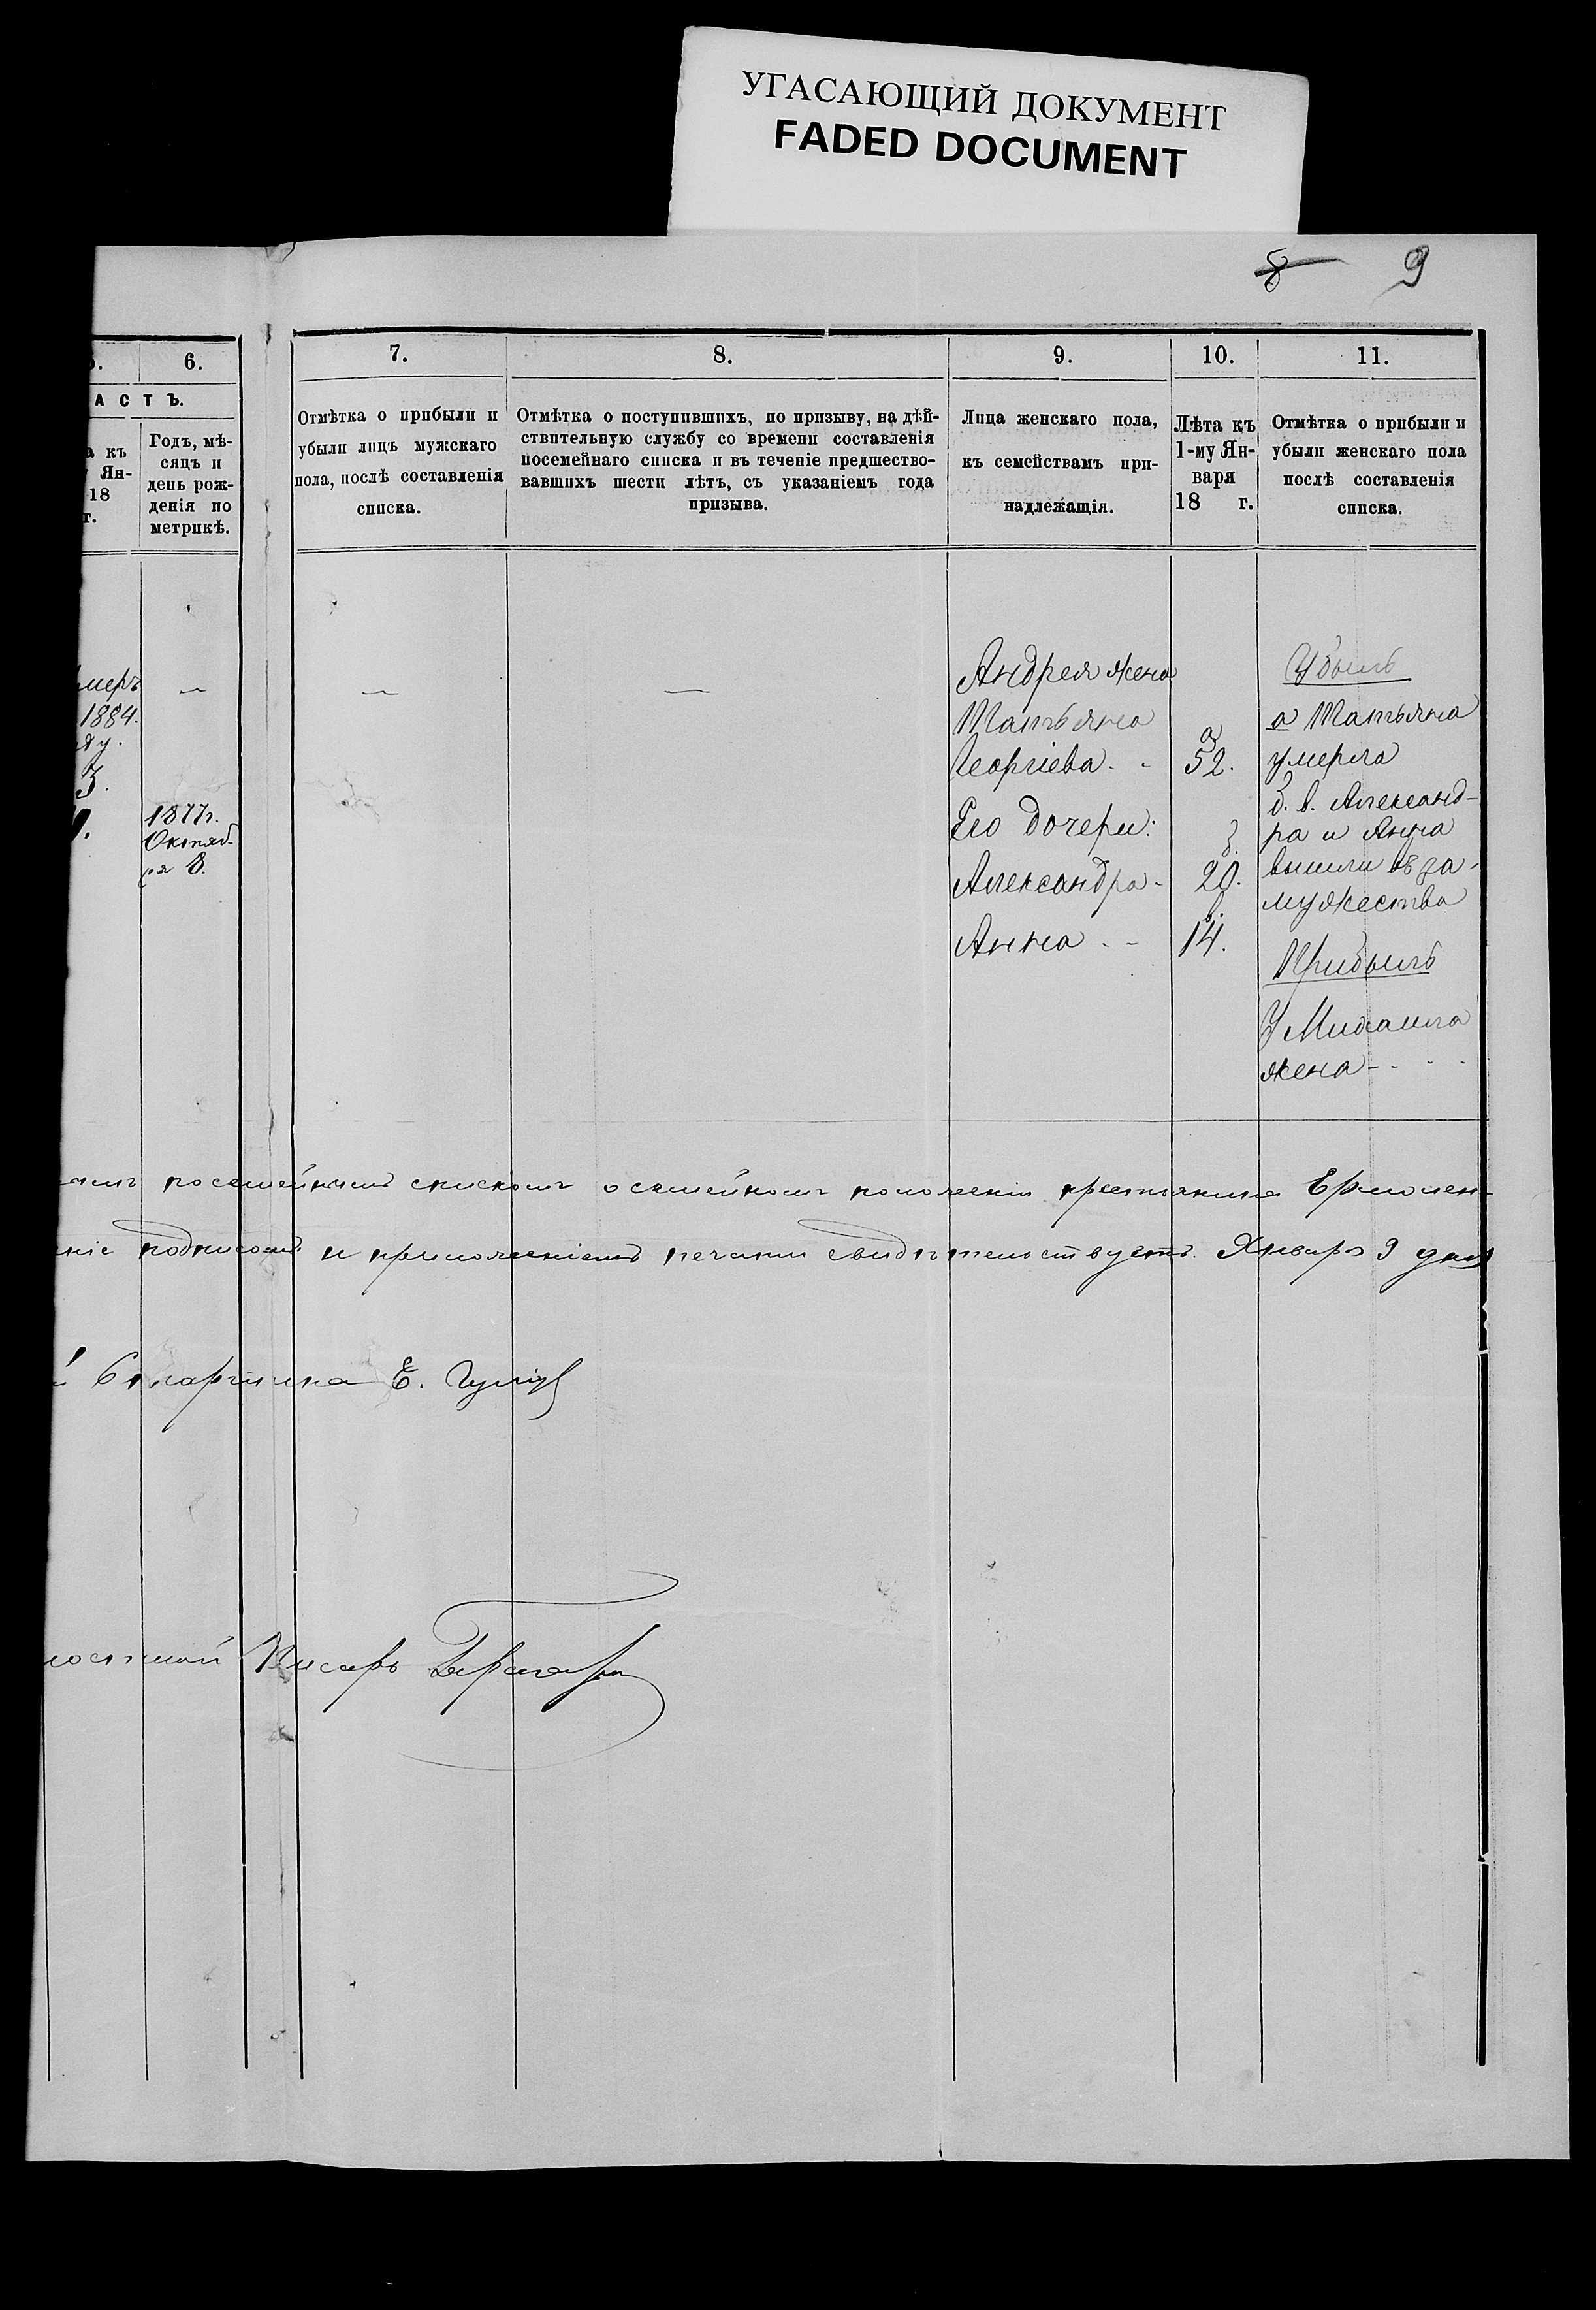 УГАСАЮЩИЙ ДОКУМЕНТ
FADED DOCUMENT
8 9
6.
АСТЪ.
а къ
Ян-
18
г.
Годъ, мѣ-
сяцъ и
день рож-
денія по
метрикѣ.
7.
Отмѣтка о прибыли и
убыли лицъ мужскаго
пола, послѣ составленія
списка.
8.
Отмѣтка о поступившихъ, по призыву, на дѣй-
ствительную службу со времени составленія
посемейнаго списка и въ теченіе предшество-
вавшихъ шести лѣтъ, съ указаніемъ года
призыва.
9.
Лица женскаго пола,
къ семействамъ при-
надлежащія.
10.
Лѣта къ
1-му Ян-
варя
18 г.
11.
Отмѣтка о прибыли и
убыли женскаго пола
послѣ составленія
списка.
меръ
1884.
ду.
3.
—
1877г.
Октяб-
ря 8.
—
—
Андрея жена
Татьяна
Георгіева. -
Его дочери:
Александра -
Анна - -
а
52.
б.
20.
в.
14.
Убыль
а Татьяна
умерла
б. в. Александ-
ра и Анна
вышли въ за-
мужества
Прибыль
У Михаила
жена - - - -
посемейнымъ спискомъ о семейномъ положеніи крестьянина Ермолен-
ніе подписомъ и приложеніемъ печати свидѣтельствуетъ. Января 9 дня
Старшина Е.
лостной Писарь